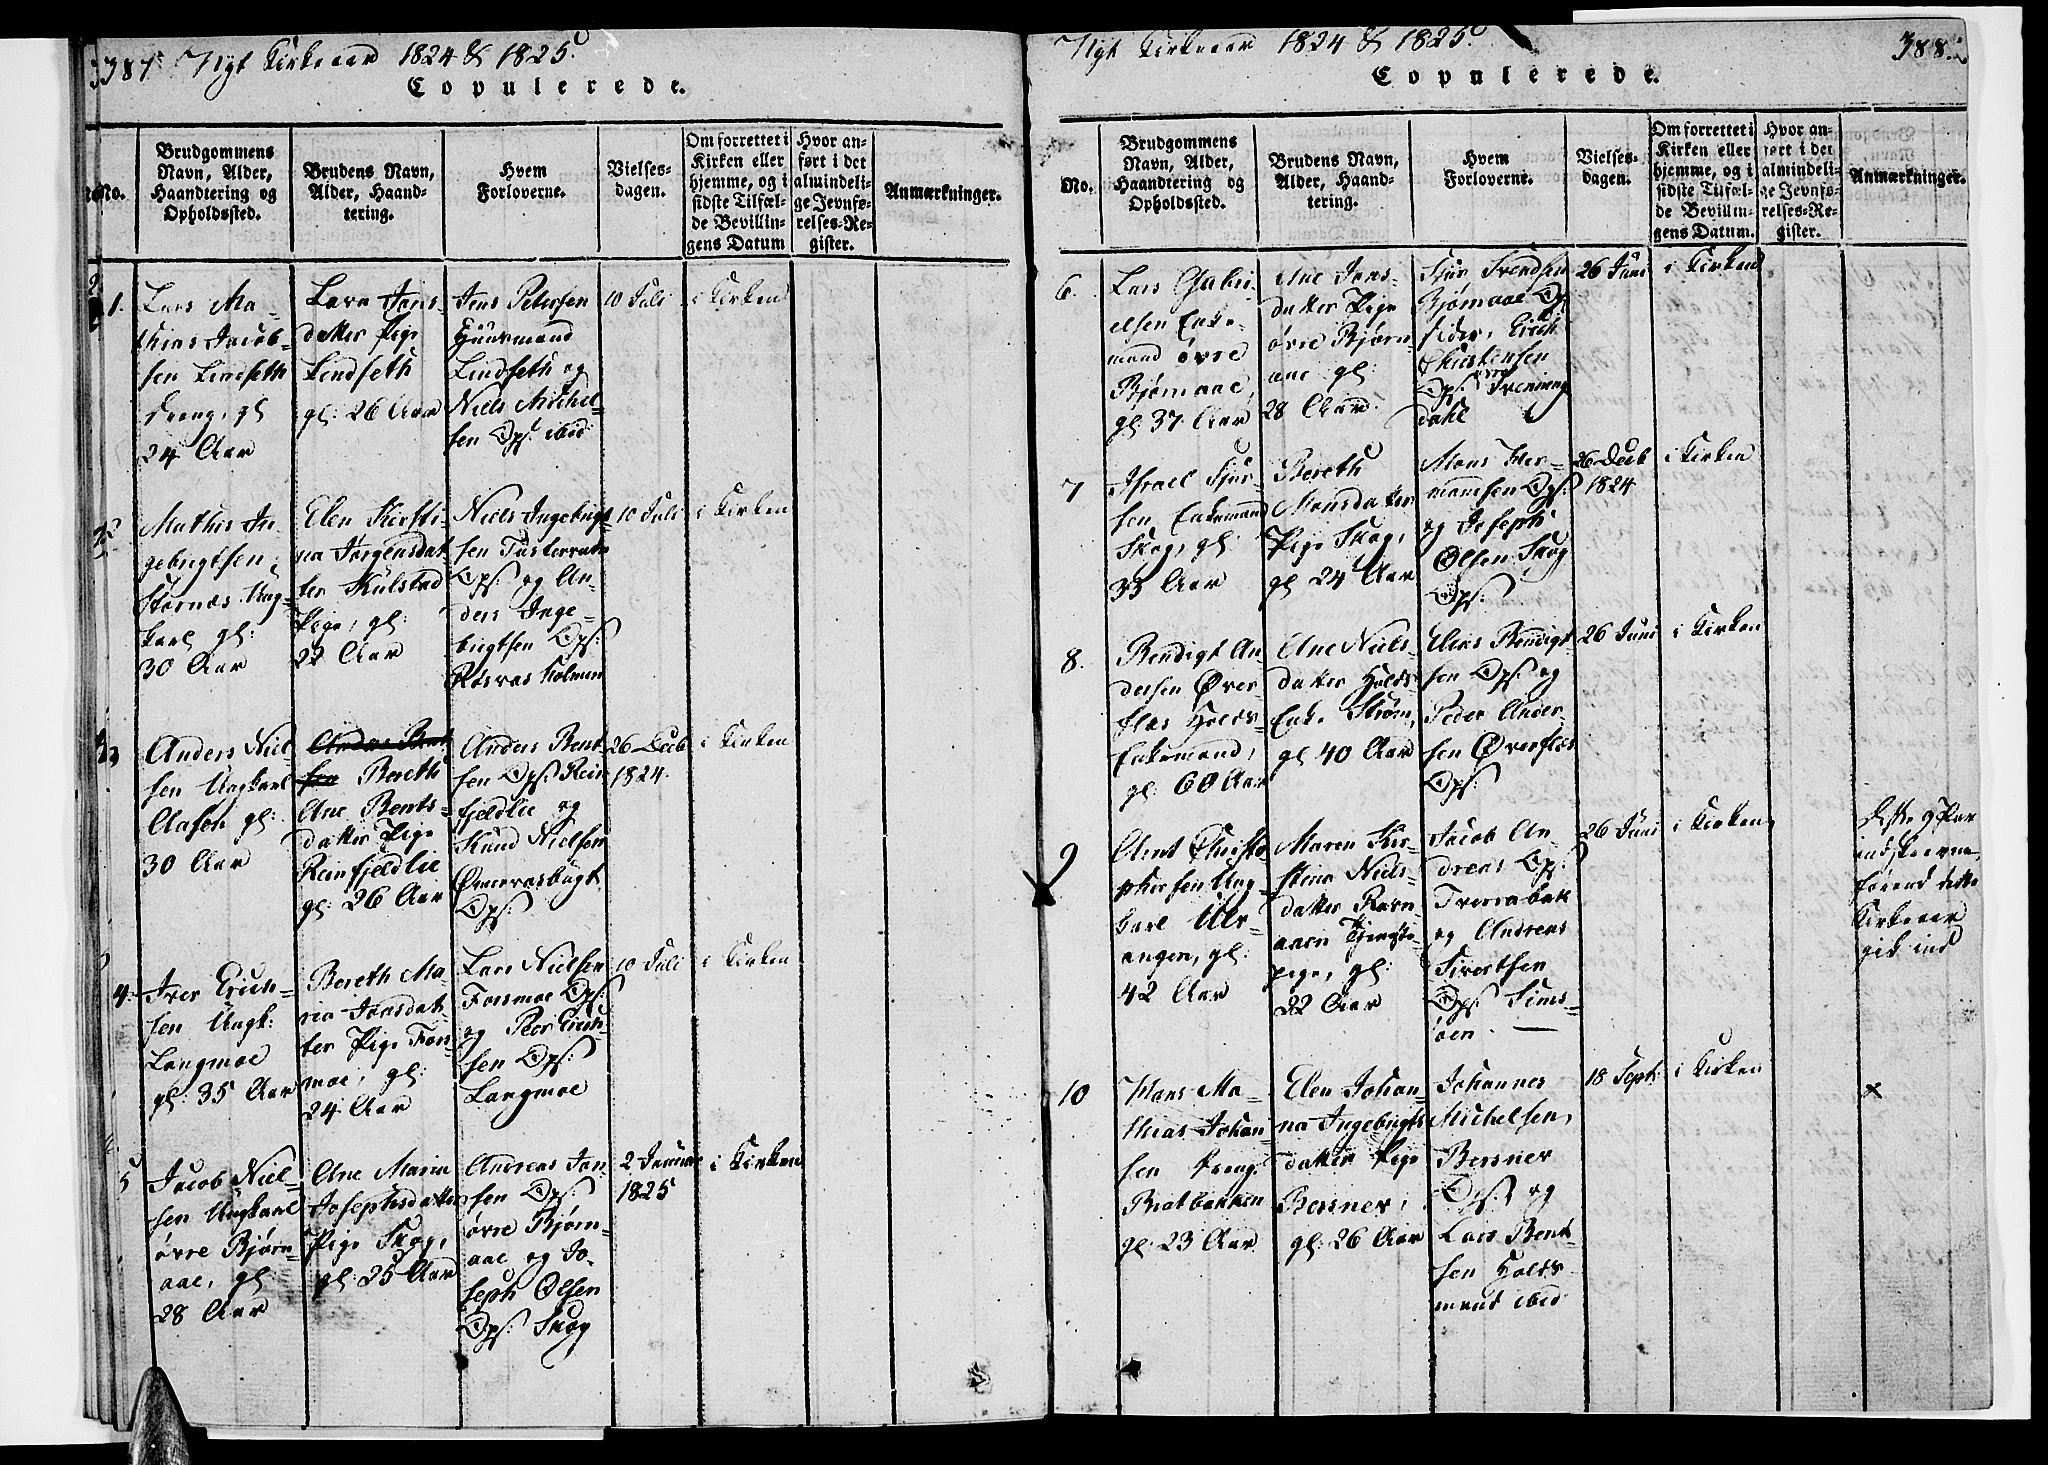 387. Nyt Kirkeaar 1824 & 1825.
Copulerede.
No.
Brudgommens
Navn, Alder,
Haandtering og
Opholdssted.
Brudens Navn,
Alder, Haand-
tering.
Hvem
Forloverne.
Vielses-
dagen.
Om forrettet i
Kirken eller
hjemme, og i
sidste Tilfæl-
de Bevillin-
gens Datum
Hvor an-
ført i det
almindeli-
ge Jevnfø-
relses-Re-
gister.
Anmærkninger.
1.
Lars Ma-
thias Jacob-
sen Lindseth
Dreng, gl
24 Aar
Lava Jens-
datter Pige
Lindseth
gl: 26 Aar
Jens Petersen
Huusmand
Lindseth og
Niels Michel-
sen Ops. ibid
10 Juli
i Kirken
2
Mathis In-
gebrigtsen,
Stornæs Ung-
karl gl:
30 Aar
Elen Kirsti-
na Jørgensdat
ter Kulstad
Pige, gl:
22 Aar
Niels Ingebrigt-
sen Tustervatn
Ops. og An-
ders Inge-
brigtsen Ops:
Røsvas holmen
10 Juli
i Kirken
3
Anders Niel
sen Ungkarl
gl:
30 Aar
Anders Bent
sen Bereth
Ane Bents-
datter Pige
Reinfjeldlie
gl: 26 Aar
Anders Bent
sen Ops. Rein
fjeldlie og
Knud Nielsen
Ops:
26 Decb
1824.
i Kirken
4.
Iver Erich-
sen Ungk:
Langmoe
gl: 35 Aar
Bereth Ma-
ria Jonsdat
ter Pige Fors-
moe, gl:
24 Aar
Lars Nielsen
Forsmoe Ops:
og Peer Erich-
sen Ops:
Langmoe
10 Juli
i Kirken
5
Jacob Niel-
sen Ungkarl
øvre Bjørn-
aae, gl:
28 Aar
Ane Maria
Josephsdatter
Pige Skog,
gl: 25 Aar
Andreas Jon
sen Ops:
øvre Bjørn-
aae og Jo-
seph Olsen
Ops: Skog
2 Januar
1825
i Kirken
Nyt Kirkeaar 1824 & 1825.
388.
Copulerede.
No.
Brudgommens
Navn, Alder,
Haandtering og
Opholdssted.
Brudens Navn,
Alder, Haand-
tering.
Hvem
Forloverne.
Vielses-
dagen.
Om forrettet i
Kirken eller
hjemme, og i
sidste Tilfæl-
de Bevillin-
gens Datum.
Hvor an-
ført i det
almindeli-
ge Jevnfø-
relses-Re-
gister.
Anmærkninger.
6.
Lars Gabri-
elsen Enke-
mand øvre
Bjørnaae,
gl: 37 Aar
Ane Jons-
datter Pige
øvre Bjørn-
aae gl:
28 Aar.
Sjur Svendsen
Bjørnaae Op
sidder, Erich
Christensen
Ops:
dahl
26 Juni
i Kirken
7
Israel Sjur-
sen Enkemand
Skog, gl:
33 Aar
Bereth
Monsdatter
Pige Skog,
gl 24 Aar
Mons Her-
mansen Ops:
og Joseph
Olsen Skog
Ops:
26 Decb
1824
i Kirken
8.
Bendigt An-
dersen Over
flæs Holds
Enkemand,
gl: 60 Aar
Ane Niels-
datter Holds
Enke Strøm,
gl 40 Aar
Elias Bendigt
sen Ops: og
Peder Ander-
sen Overflæs
Ops:
26 Juni
i Kirken
9
Arnt Christo-
phersen Ung-
karl Ulv-
angen, gl:
42 Aar
Maren Kir-
stina Niels-
datter Ravn-
aaen Tjeneste-
pige, gl:
22 Aar
Jacob An-
dreas Ops:
Tveraabak
og Andreas
Sivertsen
Ops: Sims-
øen.
26 Juni
i Kirken
Disse 9 Par
indskrevne,
førend dette
Kirkeaar
gik ind
10
Hans Ma-
thias Johan-
sen Dreng
Bratbakken
gl: 23 Aar
Elen Johan-
na Ingebrigts
datter Pige
Besner,
gl: 26 Aar
Johannes
Michelsen,
Besner
Ops: og
Lars Bent-
sen Holds
mand ibid
18 Septb:
i Kirken
x